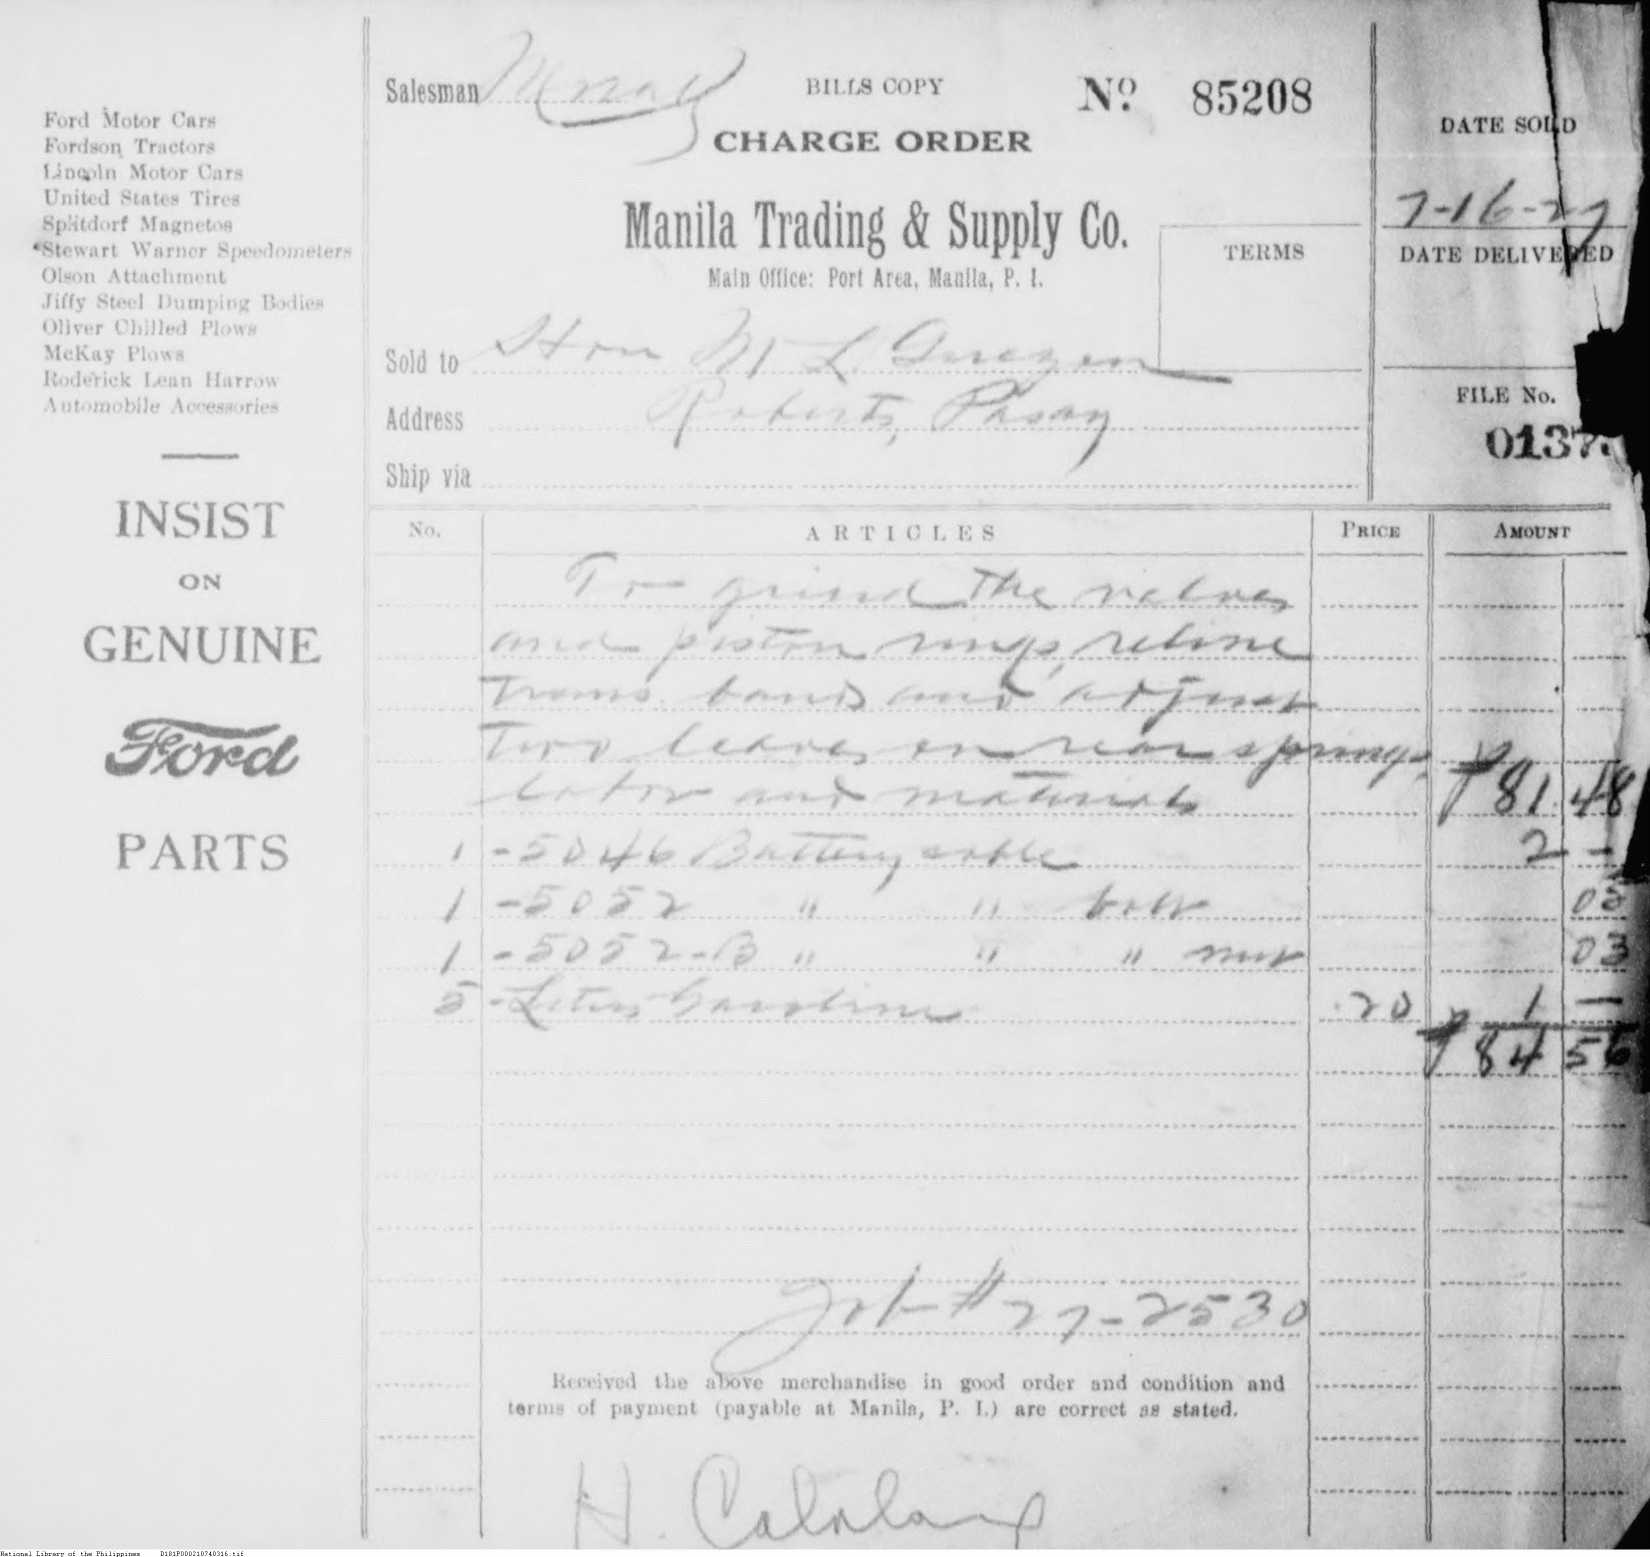 Ford Motor Cars
Fordson Tractors
Lincoln Motor Cars
United States Tires
Splitdorf Magnetos
Stewart Warner Speedometers
Olson Attachment
Jiffy Steel Dumping Bodies
Oliver Chilled Plows
McKay Plows
Roderick Lean Harrow
Automobile Accessories
INSIST
ON
GENUINE
Ford
PARTS
Salesman
BILLS COPY
No. 85208
CHARGE ORDER
Manila Trading & Supply Co.
Main Office: Port Area, Manila, P. I.
TERMS
DATE SOLD
7-16-27
DATE DELIVERED
FILE No.
0137
Sold to Hon M L Quezon
Address Roberts, Pasay
Ship via
No. ARTICLES PRICE AMOUNT
To grind the valves
and piston rings, reline
trans. bands and adjust
two leaves on rear springs,
labor and materials ₱81.48
1 -5046 Battery cable 2 -
1 -5052 " " bolt 05
1 -5052-B " " " nut 03
5 -Liters Gasoline .20 1 —
₱84 56
Job # 27-2530
Received the above merchandise in good order and condition and
terms of payment (payable at Manila, P. I.) are correct as stated.
H.
National Library of the Philippines D181P000210740316.tif